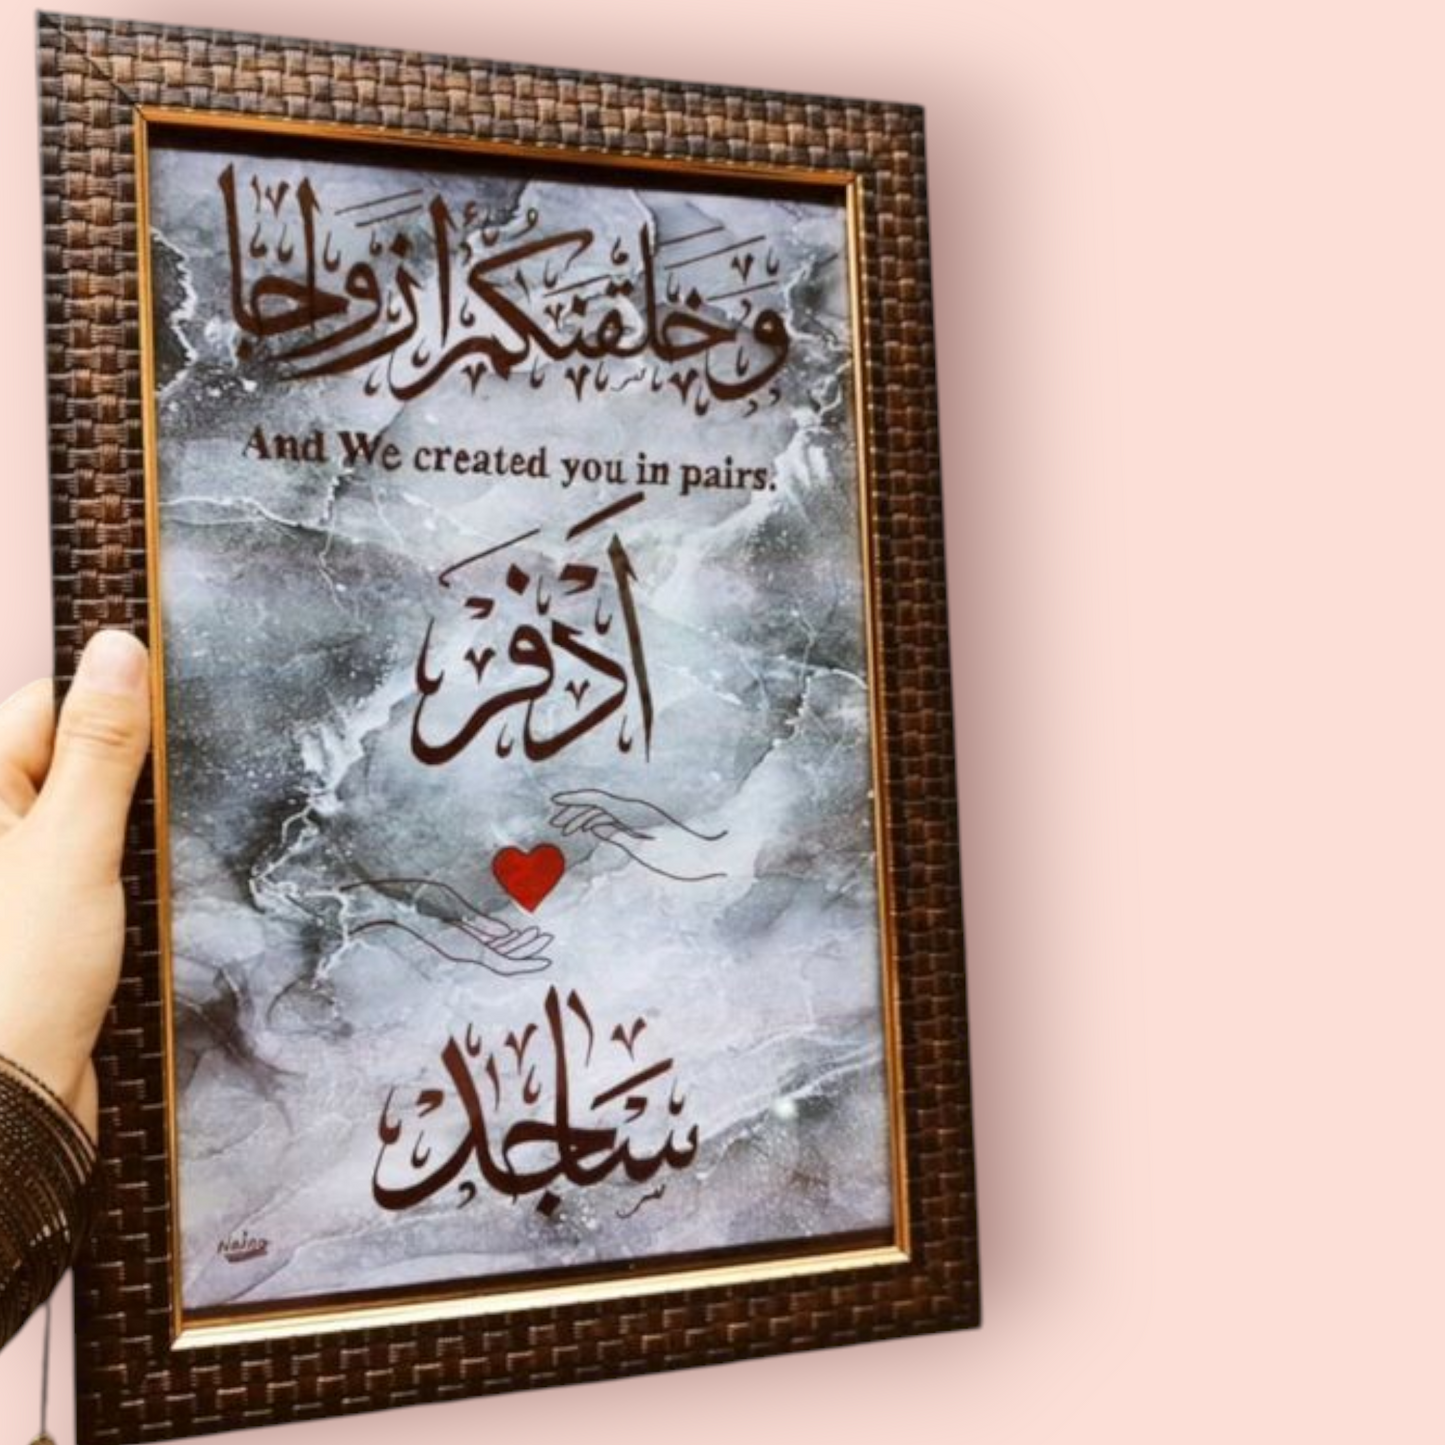 وَخَلَقْنَٰكُمْ أَزْوَٰجًا
And We created you in pairs.
اَذْفَرْ
سَاجِدْ